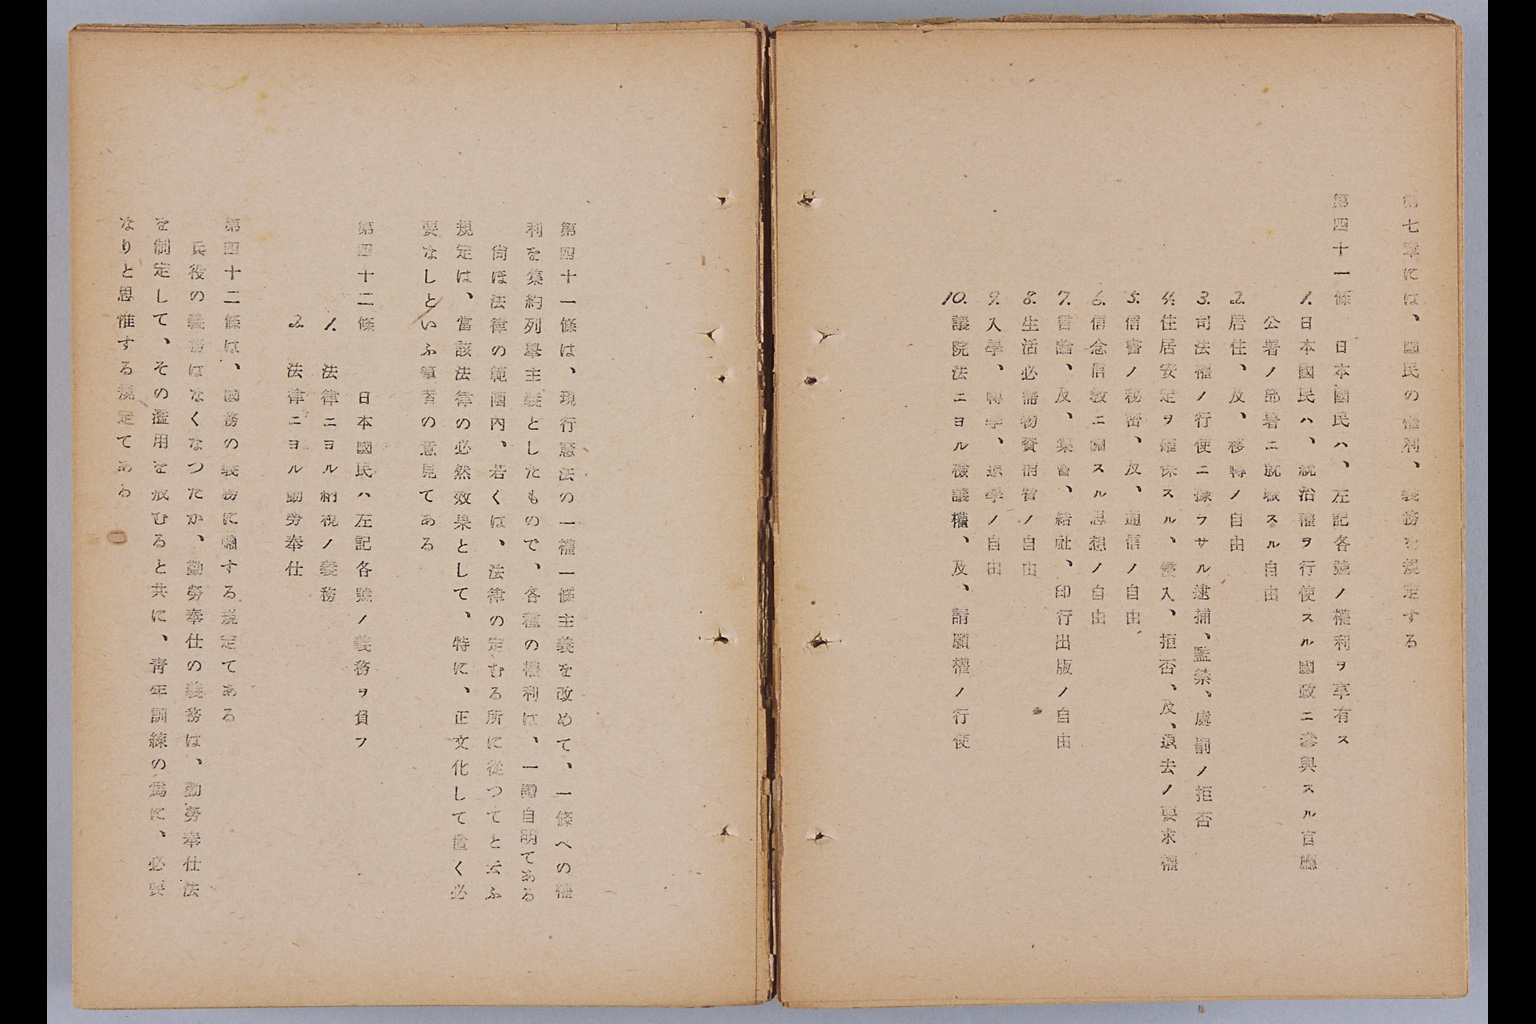 第七章には、國民の權利、義務を規定する
第四十一條　日本國民ハ、左記各號ノ權利ヲ享有ス
1. 日本國民ハ、統治權ヲ行使スル國政ニ參與スル官廳
公署ノ部署ニ就職スル自由
2. 居住、及、移轉ノ自由
3. 司法權ノ行使ニ據ラサル逮捕、監禁、處罰ノ拒否
4. 住居安定ヲ確保スル、侵入、拒否、及、退去ノ要求權
5. 信書ノ秘密、及、通信ノ自由
6. 信念信敎ニ關スル思想ノ自由
7. 言論、及、集會、結社、印行出版ノ自由
8. 生活必需物資消費ノ自由
9. 入學、轉學、退學ノ自由
10. 議院法ニヨル複議權、及、請願權ノ行使
第四十一條は、現行憲法の一權一條主義を改めて、一條への權
利を集約列擧主義としたもので、各種の權利は、一讀自明てある
尙ほ法律の範囲內、若くは、法律の定むる所に從つてと云ふ
規定は、當該法律の必然效果として、特に、正文化して置く必
要なしといふ筆者の意見てある
第四十二條　日本國民ハ左記各號ノ義務ヲ負フ
1. 法律ニヨル納稅ノ義務
2. 法律ニヨル勤勞奉仕
第四十二條は、國務の義務に關する規定てある
兵役の義務はなくなつたか、勤勞奉仕の義務は、勤勞奉仕法
を制定して、その濫用を戒むると共に、靑年訓練の爲に、必要
なりと思惟する規定てある